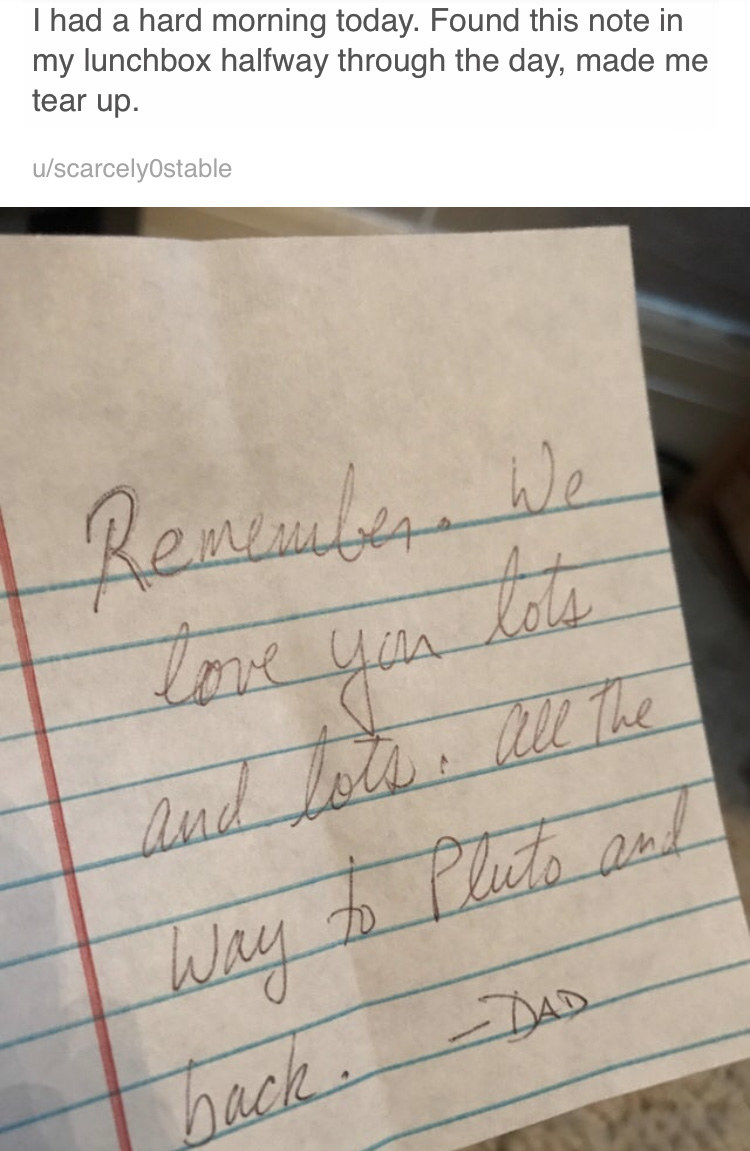 I had a hard morning today. Found this note in
my lunchbox halfway through the day, made me
tear up.
u/scarcely0stable
Remember. We
love you lots
and lots. all the
way to Pluto and
back. —DAD